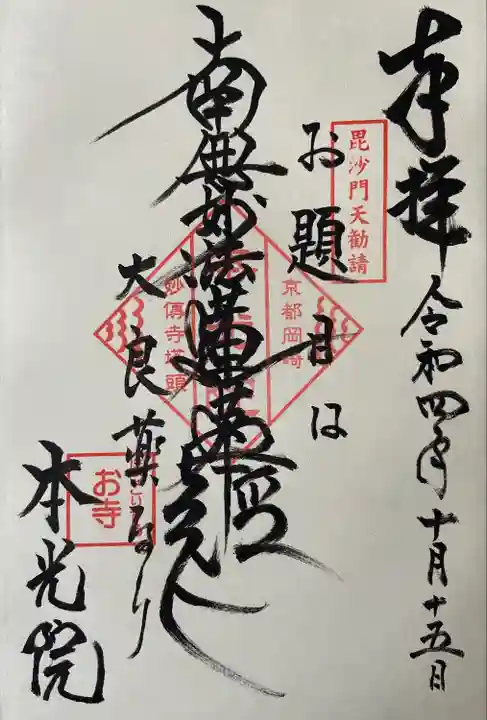 奉拝
令和四年十月十五日
毘沙門天勧請
お題目は
京都岡崎
南無妙法蓮華経
妙傳寺塔頭
大良薬なり
お寺
本光院